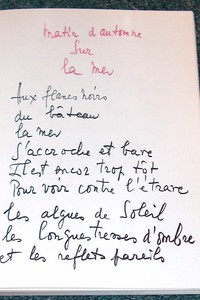 matin d'automne
Sur
la mer
Aux flancs noirs
du bâteau
la mer
S'accroche et bave
Il est encor trop tôt
Pour voir contre l'étrave
les algues de Soleil
les longues tresses d'ombre
et les reflets pareils